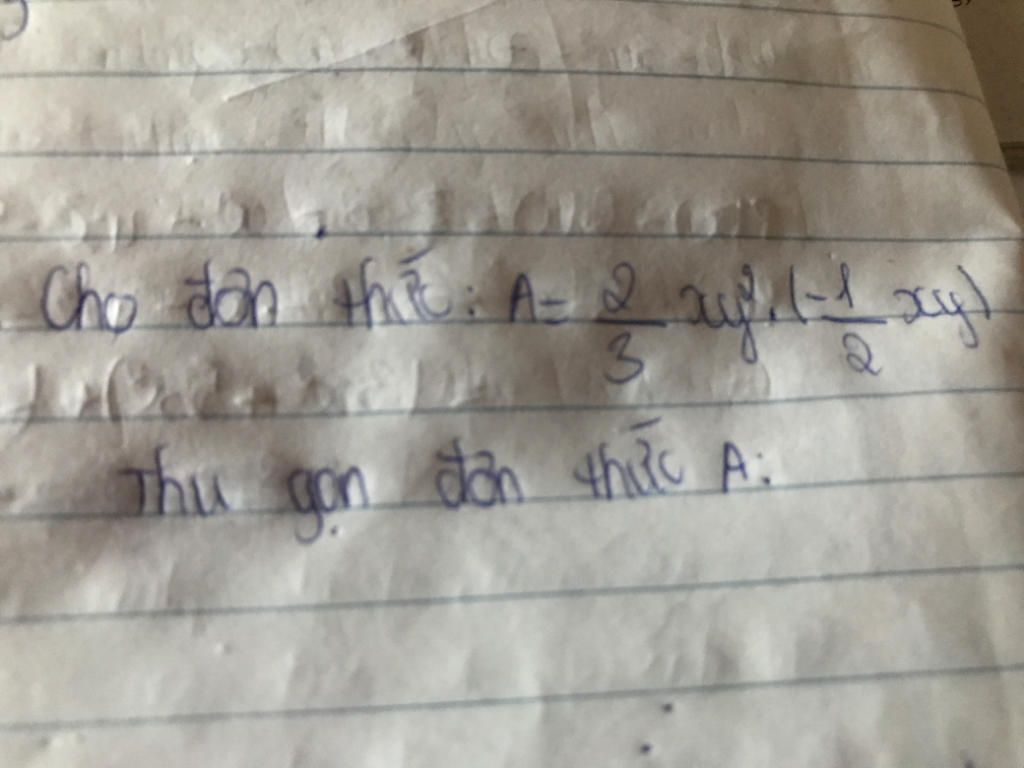 Cho đơn thức: A = 2/3 xy². (-1/2 xy)
Thu gọn đơn thức A: